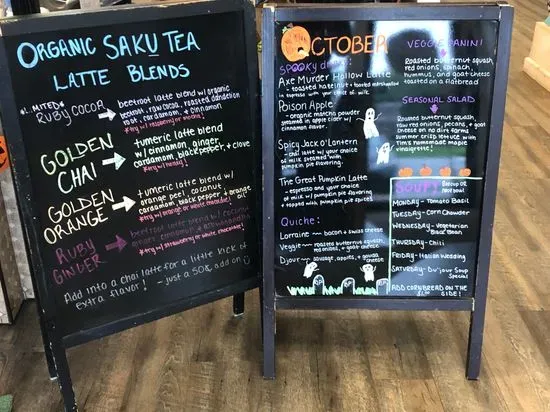 ORGANIC SAKU TEA
LATTE BLENDS
*LIMITED*
RUBY COCOA
beetroot latte blend w/ organic
beetroot, raw cocoa, roasted dandelion
root, cardamom, + cinnamon
*try w/ raspberry or mocha!
GOLDEN
CHAI
tumeric latte blend
w/ cinnamon, ginger,
cardamom, black pepper, + clove
GOLDEN
ORANGE
tumeric latte blend w/
orange peel, coconut,
cardamom, black pepper, + orange
oil
*try w/ orange or white mocha!
RUBY
GINGER
beetroot latte blend w/ coconut
ginger, cinnamon + ashwagandha
*try w/ strawberry or white chocolate!
Add into a chai latte for a little kick of
extra flavor! - just a 50¢ add on
OCTOBER
SPOOKY drinks:
Axe Murder Hollow Latte
- toasted hazelnut + toasted marshmallow
in espresso with your choice of milk
Poison Apple
- organic matcha powder
steamed in apple cider w/
cinnamon flavor.
Spicy Jack O'Lantern
- chai latte w/ your choice
of milk steamed with
pumpkin pie flavoring.
The Great Pumpkin Latte
- espresso and your choice
of milk w/ pumpkin pie flavoring
+ topped with pumpkin pie spices
Quiche:
Lorraine ~ bacon + swiss cheese
Veggie ~ roasted butternut squash,
red onions, + goat cheese
Djour ~ sausage, apples, + gouda
cheese
RIP
VEGGIE PANINI
Roasted butternut squash,
red onions, spinach,
hummus, and goat cheese
toasted on a flatbread!
SEASONAL SALAD
Roasted butternut squash,
raw red onions, pecans, + goat
cheese on no dirt farms
summer crisp lettuce with
Tim's homemade maple
vinaigrette!
SOUP!
MONDAY - Tomato Basil
TUESDAY - Corn Chowder
WEDNESDAY - Vegetarian
Black Bean
THURSDAY - Chili
FRIDAY - Italian Wedding
SATURDAY - Du'jour Soup
Special
ADD CORNBREAD ON THE
SIDE!